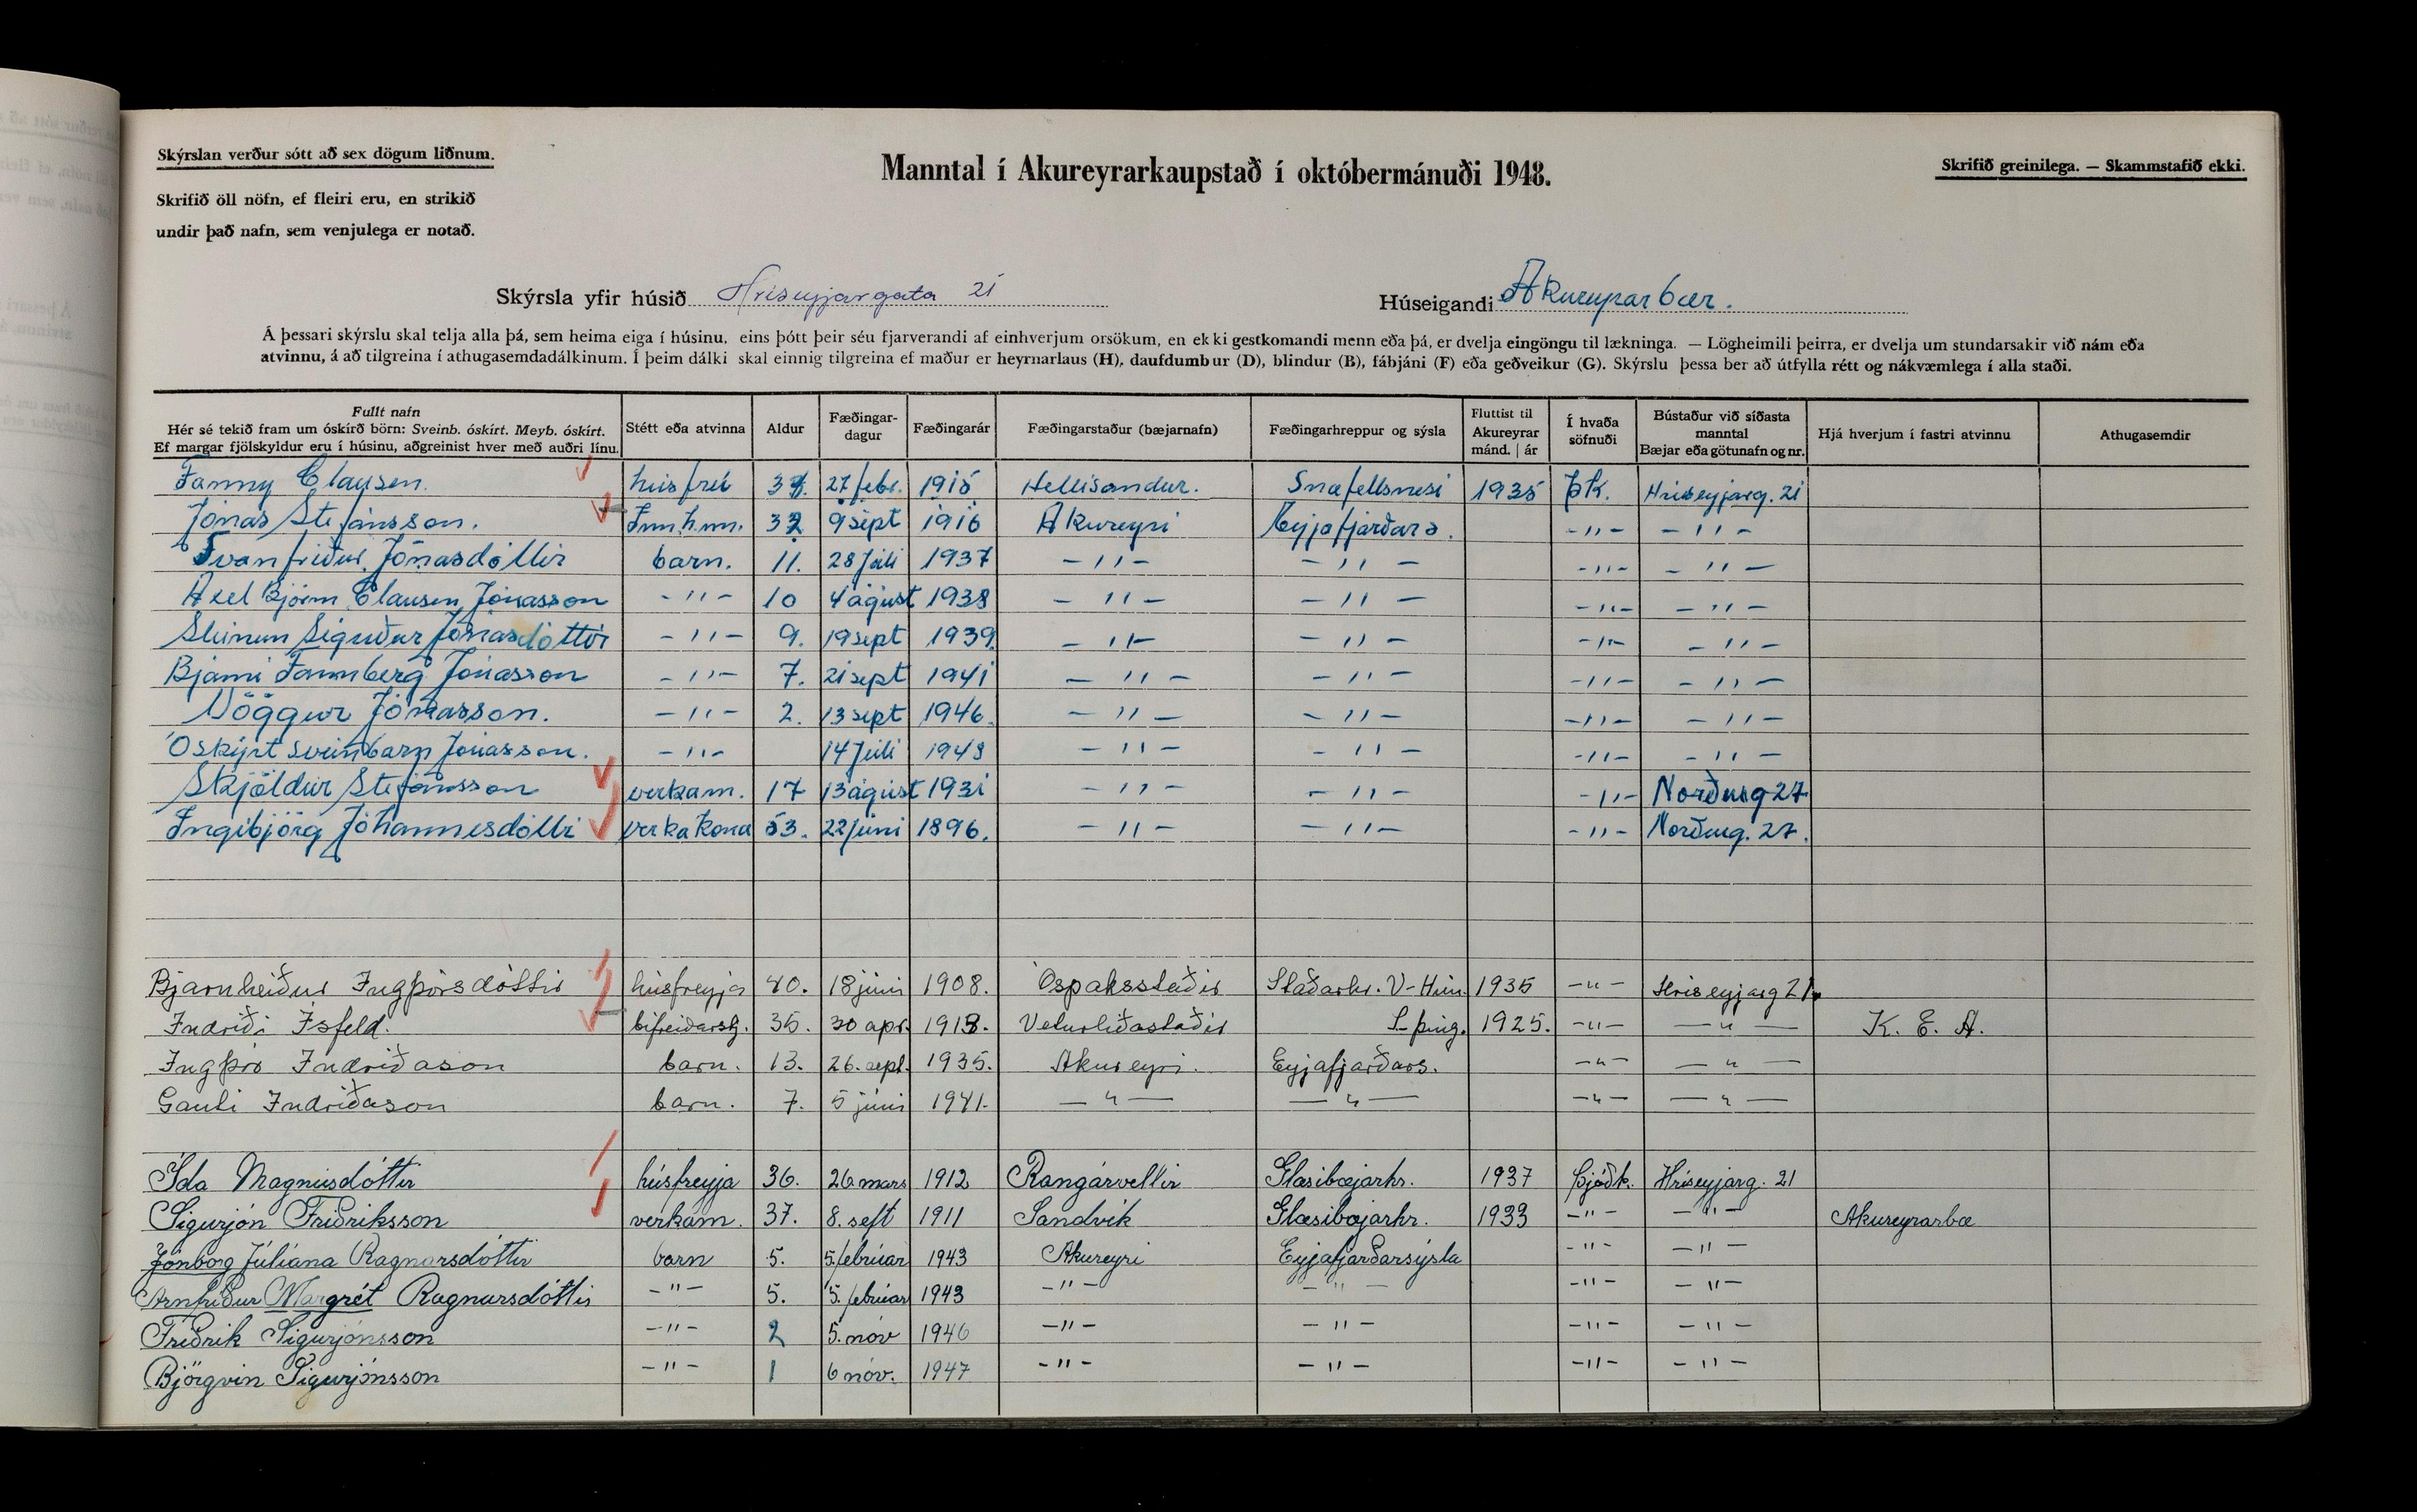 Skýrslan verður sótt að sex dögum liðnum.
Skrifið öll nöfn, ef fleiri eru, en strikið
undir það nafn, sem venjulega er notað.
Manntal í Akureyrarkaupstað í októbermánuði 1948.
Skrifið greinilega. — Skammstafið ekki.
Skýrsla yfir húsið Hríseyjargata 21
Húseigandi Akureyrarbær.
Á þessari skýrslu skal telja alla þá, sem heima eiga í húsinu, eins þótt þeir séu fjarverandi af einhverjum orsökum, en ekki gestkomandi menn eða þá, er dvelja eingöngu til lækninga. — Lögheimili þeirra, er dvelja um stundarsakir við nám eða
atvinnu, á að tilgreina í athugasemdadálkinum. Í þeim dálki skal einnig tilgreina ef maður er heyrnarlaus (H), daufdumbur (D), blindur (B), fábjáni (F) eða geðveikur (G). Skýrslu þessa ber að útfylla rétt og nákvæmlega í alla staði.
Fullt nafn
Hér sé tekið fram um óskírð börn: Sveinb. óskírt. Meyb. óskírt.
Ef margar fjölskyldur eru í húsinu, aðgreinist hver með auðri línu.
Stétt eða atvinna
Aldur
Fæðingar-
dagur
Fæðingarár
Fæðingarstaður (bæjarnafn)
Fæðingarhreppur og sýsla
Fluttist til
Akureyrar
mánd. | ár
Í hvaða
söfnuði
Bústaður við síðasta
manntal
Bæjar eða götunafn og nr.
Hjá hverjum í fastri atvinnu
Athugasemdir
Fanny Clausen. húsfrú 33. 27 febr. 1915 Hellisandur. Snæfellsnesi 1935 Þk. Hríseyjarg. 21
Jónas Stefánsson. 32 9 sept 1916 Akureyri Eyjafjarðars. -"- -"-
Svanfríður Jónasdóttir barn. 11. 28 júlí 1937 -"- -"- -"- -"-
Axel Björn Clausen Jónasson -"- 10 4 ágúst 1938 -"- -"- -"- -"-
Steinunn Jónasdóttir -"- 9. 19 sept 1939. -"- -"- -"- -"-
Bjarni Fannberg Jónasson -"- 7. 21 sept 1941 -"- -"- -"- -"-
Vöggur Jónasson. -"- 2. 13 sept 1946. -"- -"- -"- -"-
Óskýrt sveinbarn Jónasson. -"- 14 júlí 1948 -"- -"- -"- -"-
Skjöldur Stefánsson verkam. 17 13 ágúst 1931 -"- -"- -"- Norðurg 27
Ingibjörg Jóhannesdóttir verkakona 53. 22 júní 1896. -"- -"- -"- Norðurg. 27.
Bjarnheiður Ingþórsdóttir húsfreyja 40. 18 júní 1908. Óspaksstaðir Staðarhr. V-Hún. 1935 -"- Hríseyjarg 21.
Indriði Ísfeld. bifreiðarstj. 35. 30 apr. 1913. Veturliðastaðir S-þing. 1925. -"- -"- K. E. A.
Ingþór Indriðason barn. 13. 26. sept. 1935. Akureyri. Eyjafjarðars. -"- -"-
Gauti Indriðason barn. 7. 5 júní 1941. -"- -"- -"- -"-
Ída Magnúsdóttir húsfreyja 36. 26 mars 1912 Rangárvellir Glæsibæjarhr. 1937 Þjóðk. Hríseyjarg. 21
Sigurjón Friðriksson verkam. 37. 8. sept 1911 Sandvík Glæsibæjarhr. 1933 -"- -"- Akureyrarbæ
Jónborg Júlíana Ragnarsdóttir barn 5. 5. febrúar 1943 Akureyri Eyjafjarðarsýsla -"- -"-
Arnfríður Margrét Ragnarsdóttir -"- 5. 5. febrúar 1943 -"- -"- -"- -"-
Friðrik Sigurjónsson -"- 2 5. nóv 1946 -"- -"- -"- -"-
Björgvin Sigurjónsson -"- 1 6 nóv. 1947 -"- -"- -"- -"-